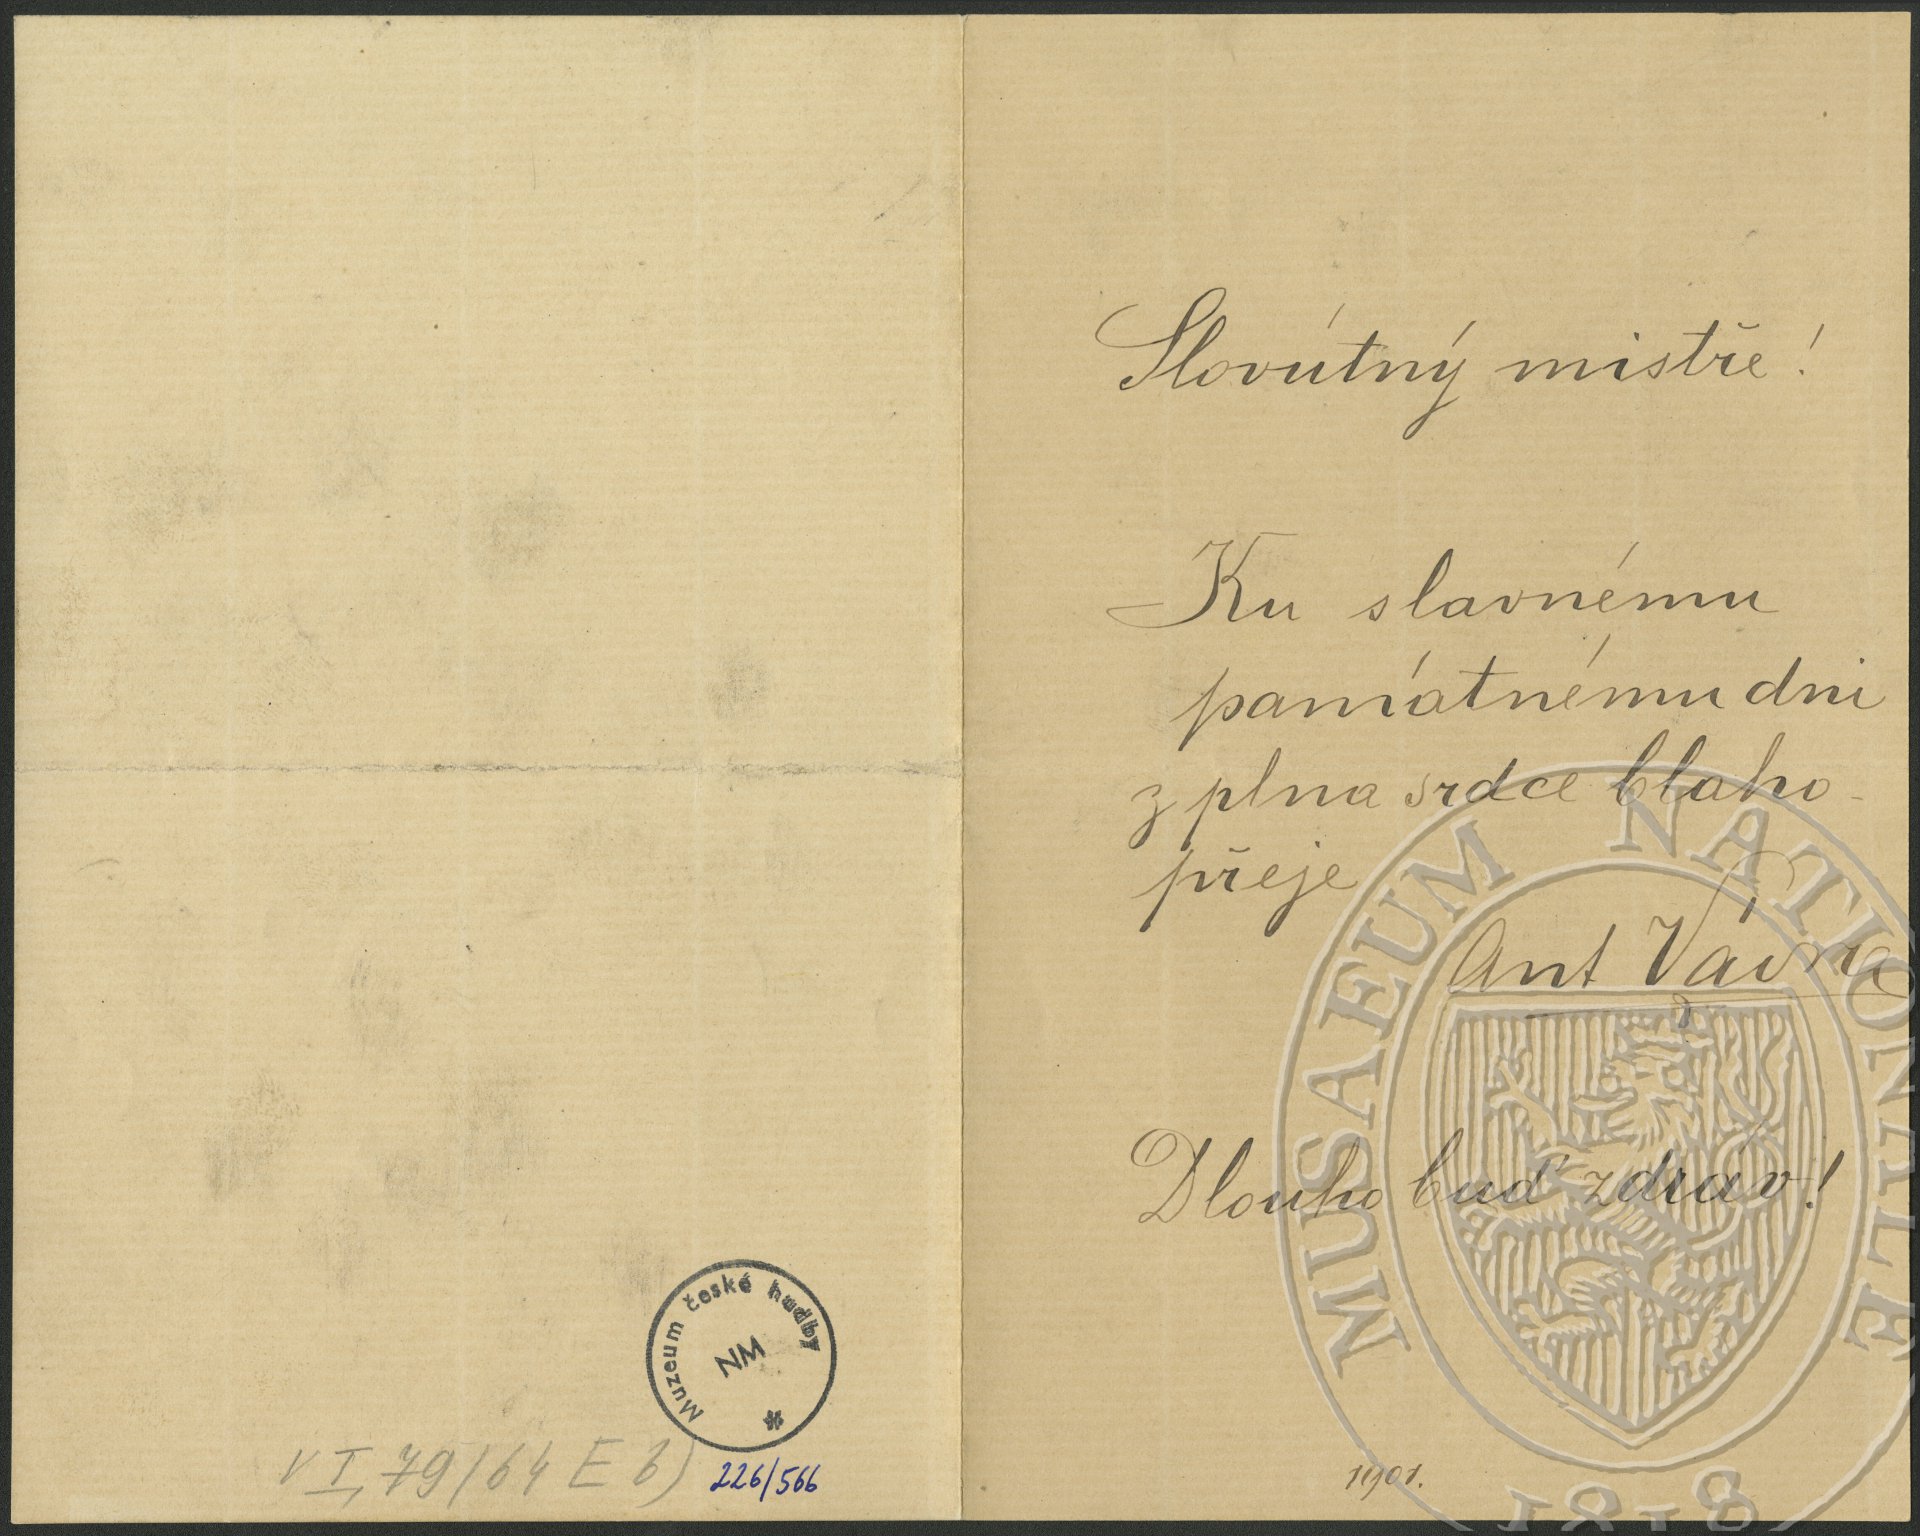 Muzeum české hudby
NM
V I, 79/64 E b)
226/566
Slovútný mistře!
Ku slavnému
památnému dni
z plna srdce blaho-
přeje
Ant Vávra
Dlouho buď zdráv!
1901.
MUSAEUM NATIONALE
1818